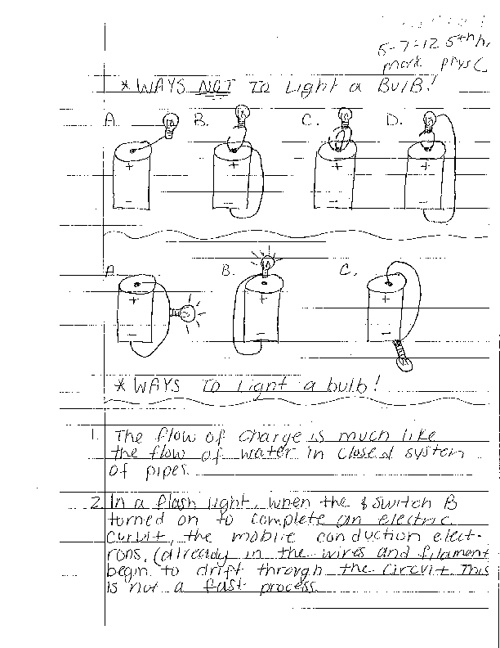 5-7:12 5th hr
mark phys
* WAYS NOT TO Light a BulB!
A. B. C. D.
+ + + +
- - - -
A B. C.
+ + +
- - -
* WAYS To Light a bulb!
1. The flow of charge is much like
the flow of water in closed system
of pipes.
2. In a flash light, when the switch B
turned on to complete an electric
Curvit, the mobile conduction elect-
rons, (already in the wires and filament
begin to drift through the circvit. This
is not a fast process.